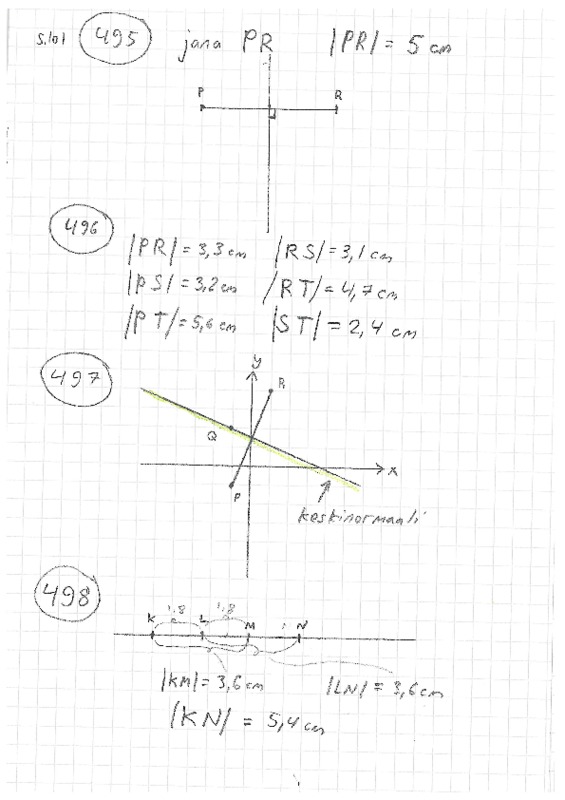 s.101 495 jana PR |PR| = 5 cm
P R
496
|PR| = 3,3 cm |RS| = 3,1 cm
|PS| = 3,2 cm |RT| = 4,7 cm
|PT| = 5,6 cm |ST| = 2,4 cm
497
y
R
Q
x
P
keskinormaali
498
1,8 1,8
K L M N
|KM| = 3,6 cm |LN| = 3,6 cm
|KN| = 5,4 cm